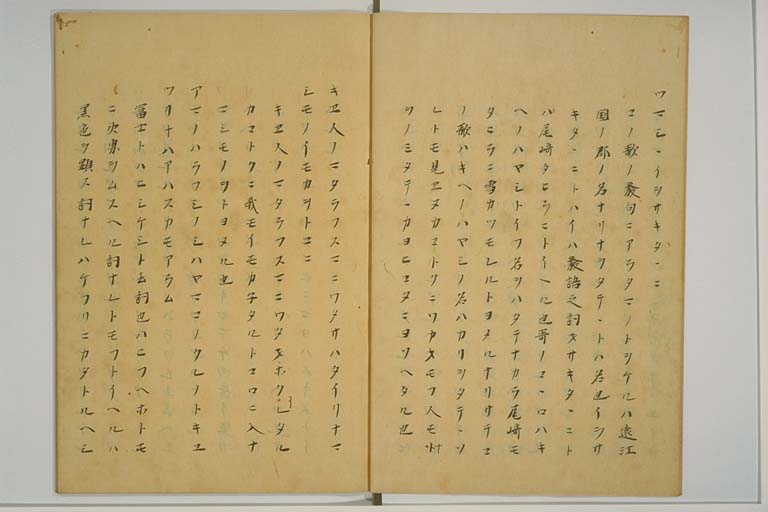 コノ歌ノ發句ニアラタマノトツケルハ遠江
国ノ郡ノ名ナリナヲタテヽトハ名也イシサ
キタヽニトハイハ發語之詞ヲサキタヽニト
ハ尾崎タヒラニトイヘル也哥ノコヽロハキ
ヘノハヤシトイフ名ヲハタテナカラ尾崎モ
タヒラニ雪カツモレルトヨメルナリサテコ
ノ歌ハキヘノハヤシノ名ハカリヲタテヽソ
レトモ見エヌカコトクニワカ思フ人モ
ノミタテヽカヨヒコヌニヨソヘタル也
キヱ人ノマタラフスマニワタサハタイリナマ
シモノイモカヲトコニ
キヱ人ノマタラフスマニワタオホクタル
カコトクニ我モイモカ子タルトコロニ入ナ
マシモノヲトヨメル也
アマノハラフシノシハヤマコノクレノトキユ
ツリナハアハスカモアラム
冨士トハニシケシト云詞也ハニフヘホトモ
ニ火ヲムスヘル詞ナレトモフトイヘルハ
黒色ヲ顕ス詞ナレハケフリニカタトルヘシ